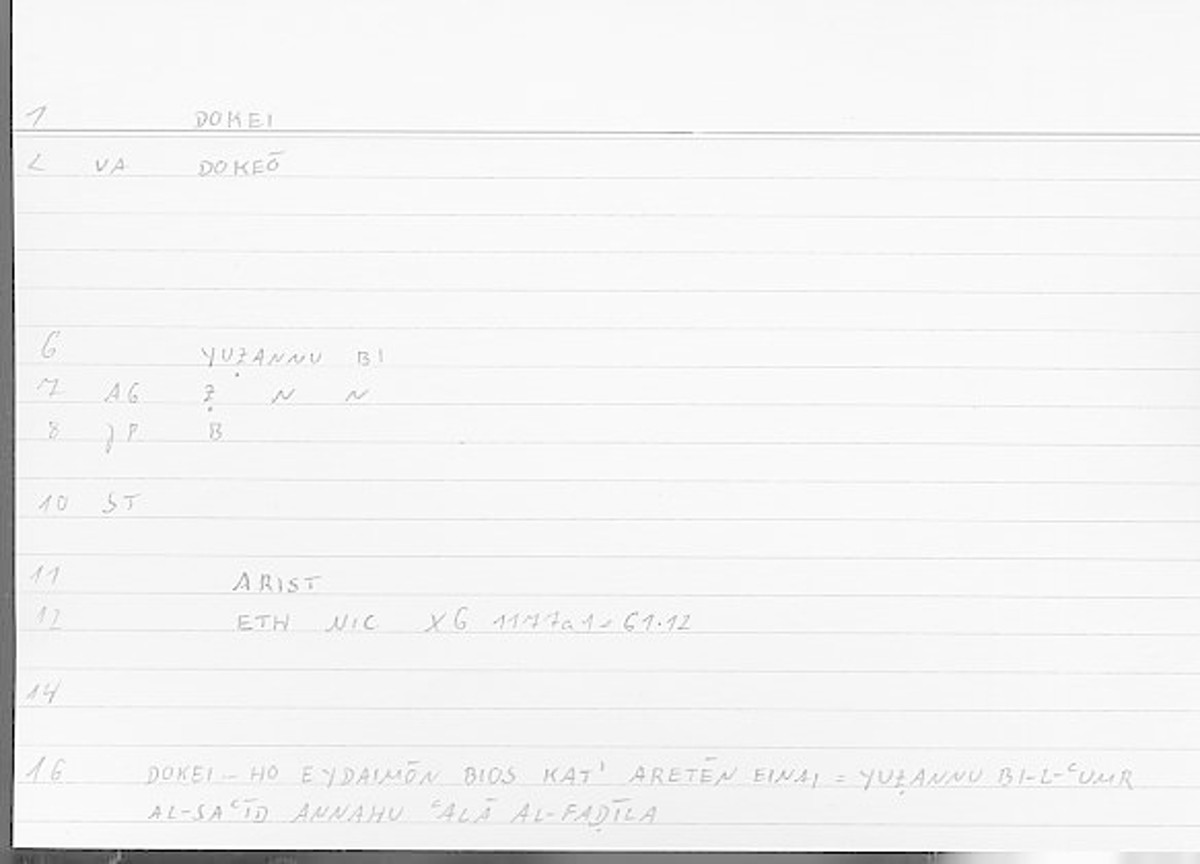 1 DOKEI
2 VA DOKEŌ
6 YUẒANNU BI
7 AG Ẓ N N
8 P B
10 ST
11 ARIST
12 ETH NIC X6 1177a1 61.12
14
16 DOKEI – HO EYDAIMŌN BIOS KAT' ARETĒN EINAI = YUẒANNU BI-L-ʿUMR
AL-SAʿĪD ANNAHU ʿALĀ AL-FAḌĪLA